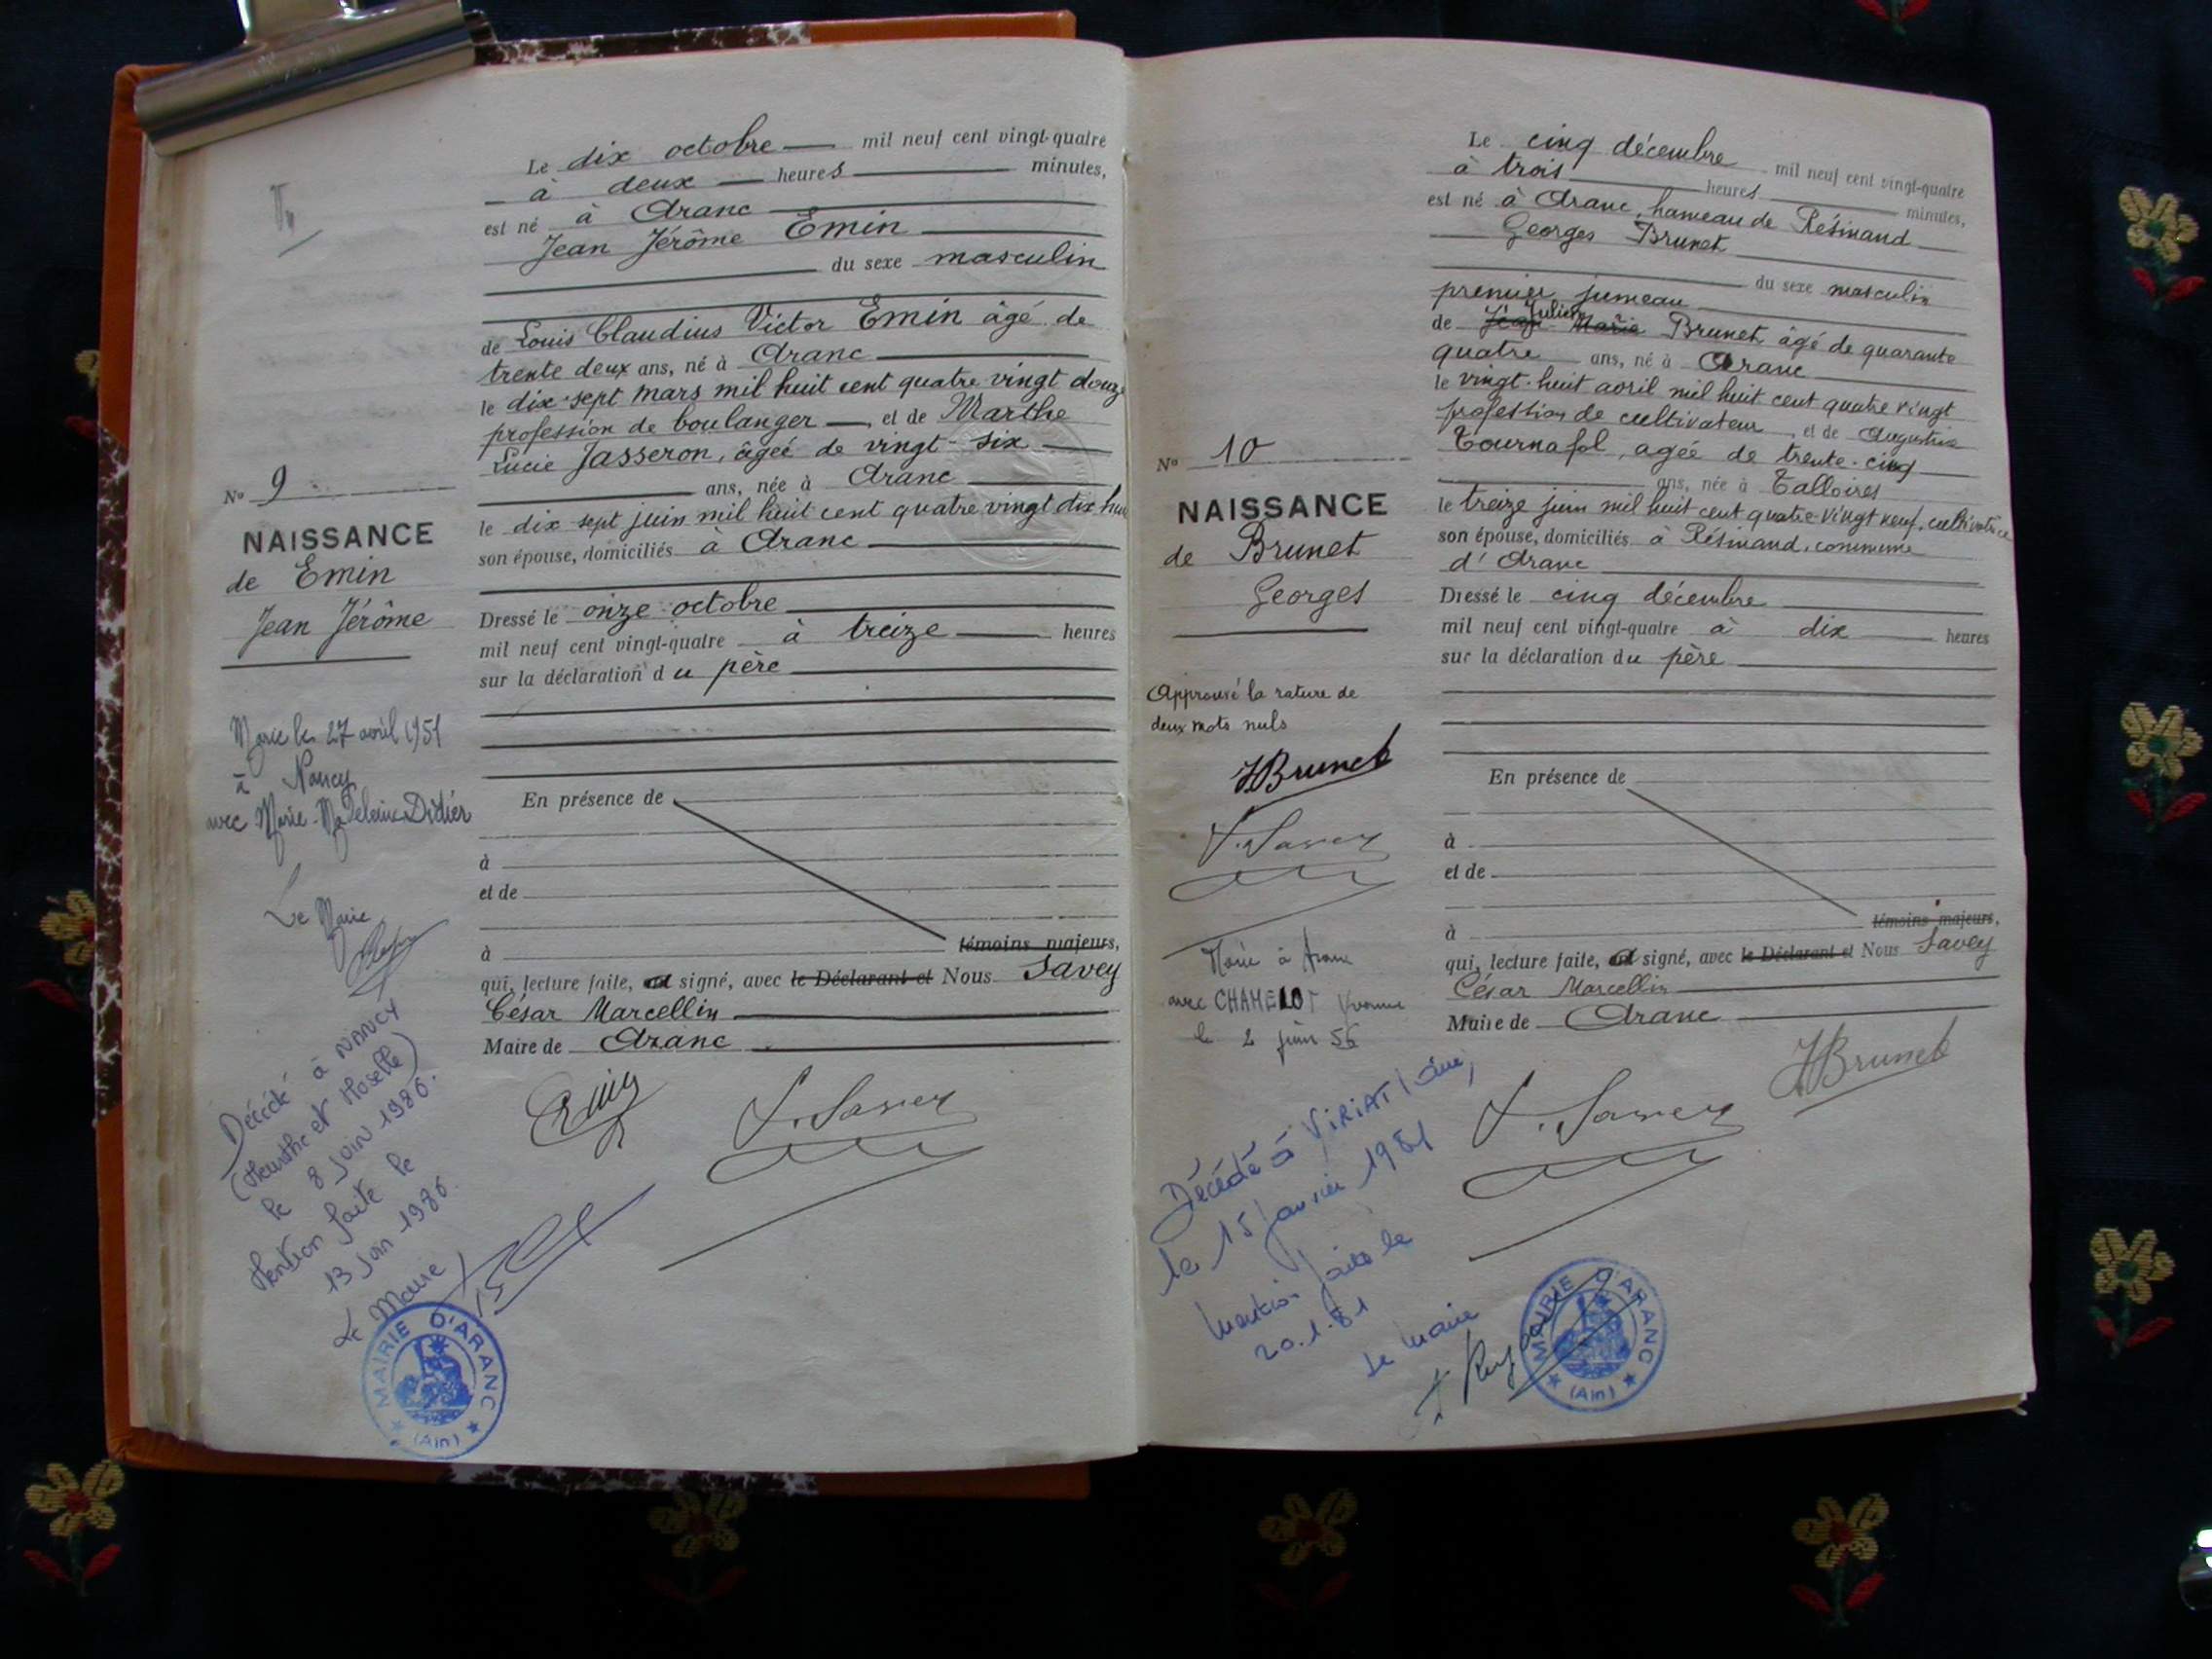 Le dix octobre mil neuf cent vingt-quatre
à deux heures minutes,
est né à Aranc
Jean Jérôme Emin
du sexe masculin
de Louis Claudius Victor Emin âgé de
trente deux ans, né à Aranc
le dix-sept mars mil huit cent quatre vingt douze
profession de boulanger, et de Marthe
Lucie Jasseron, âgée de vingt-six
ans, née à Aranc
le dix sept juin mil huit cent quatre vingt dix
son épouse, domiciliés à Aranc
Dressé le onze octobre
mil neuf cent vingt-quatre à treize heures
sur la déclaration du père
En présence de
à
et de
à témoins majeurs,
qui, lecture faite, signé, avec le Déclarant et Nous Savey
César Marcellin
Maire de Aranc
No 9
NAISSANCE
de Emin
Jean Jérôme
Marié le 27 avril 1951
à Nancy
avec Marie-Madeleine Didier
Le Maire
Décédé à NANCY
(Meurthe et Moselle)
le 8 juin 1986.
Mention faite le
13 juin 1986.
Le Maire
MAIRIE D'ARANC
(Ain)
Le cinq décembre mil neuf cent vingt-quatre
à trois heures minutes,
est né à Aranc, hameau de Résinand
Georges Brunet
du sexe masculin
premier jumeau
Julien
de Jean Marie Brunet, âgé de quarante
quatre ans, né à Aranc
le vingt-huit avril mil huit cent quatre vingt
profession de cultivateur, et de Augustine
Tournafol, agée de trente-cinq
ans, née à Talloires
le treize juin mil huit cent quatre-vingt neuf, cultivatrice
son épouse, domiciliés à Résinand, commune
d'Aranc
Dressé le cinq décembre
mil neuf cent vingt-quatre à dix heures
sur la déclaration du père
En présence de
à
et de
à témoins majeurs,
qui, lecture faite, signé, avec le Déclarant et Nous Savey
César Marcellin
Maire de Aranc
JBrunet
No 10
NAISSANCE
de Brunet
Georges
Approuvé la rature de
deux mots nuls
JBrunet
Marié à Aranc
avec CHAMELOT Yvonne
le 2 juin 56
Décédé à VIRIAT (Ain)
le 15 janvier 1981
Mention faite le
20.1.81
Le Maire
MAIRIE D'ARANC
(Ain)